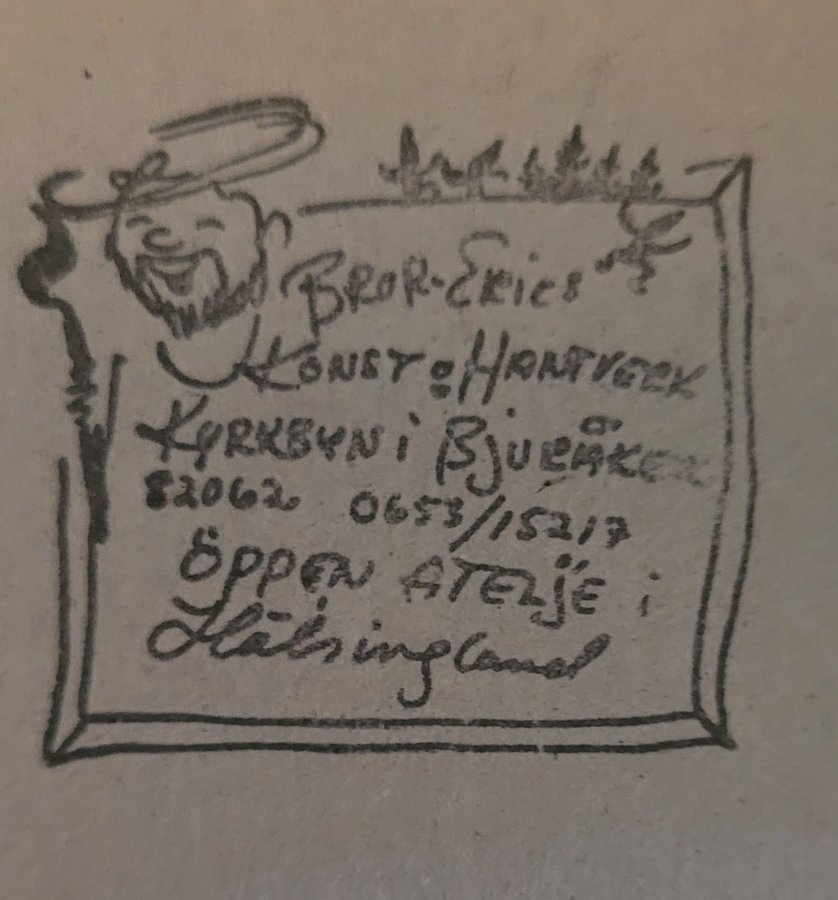 Bror-Erics
Konst o Hantverk
Kyrkbyn i Bjuråker
82062 0653/15217
Öppen Ateljé i
Hälsingland